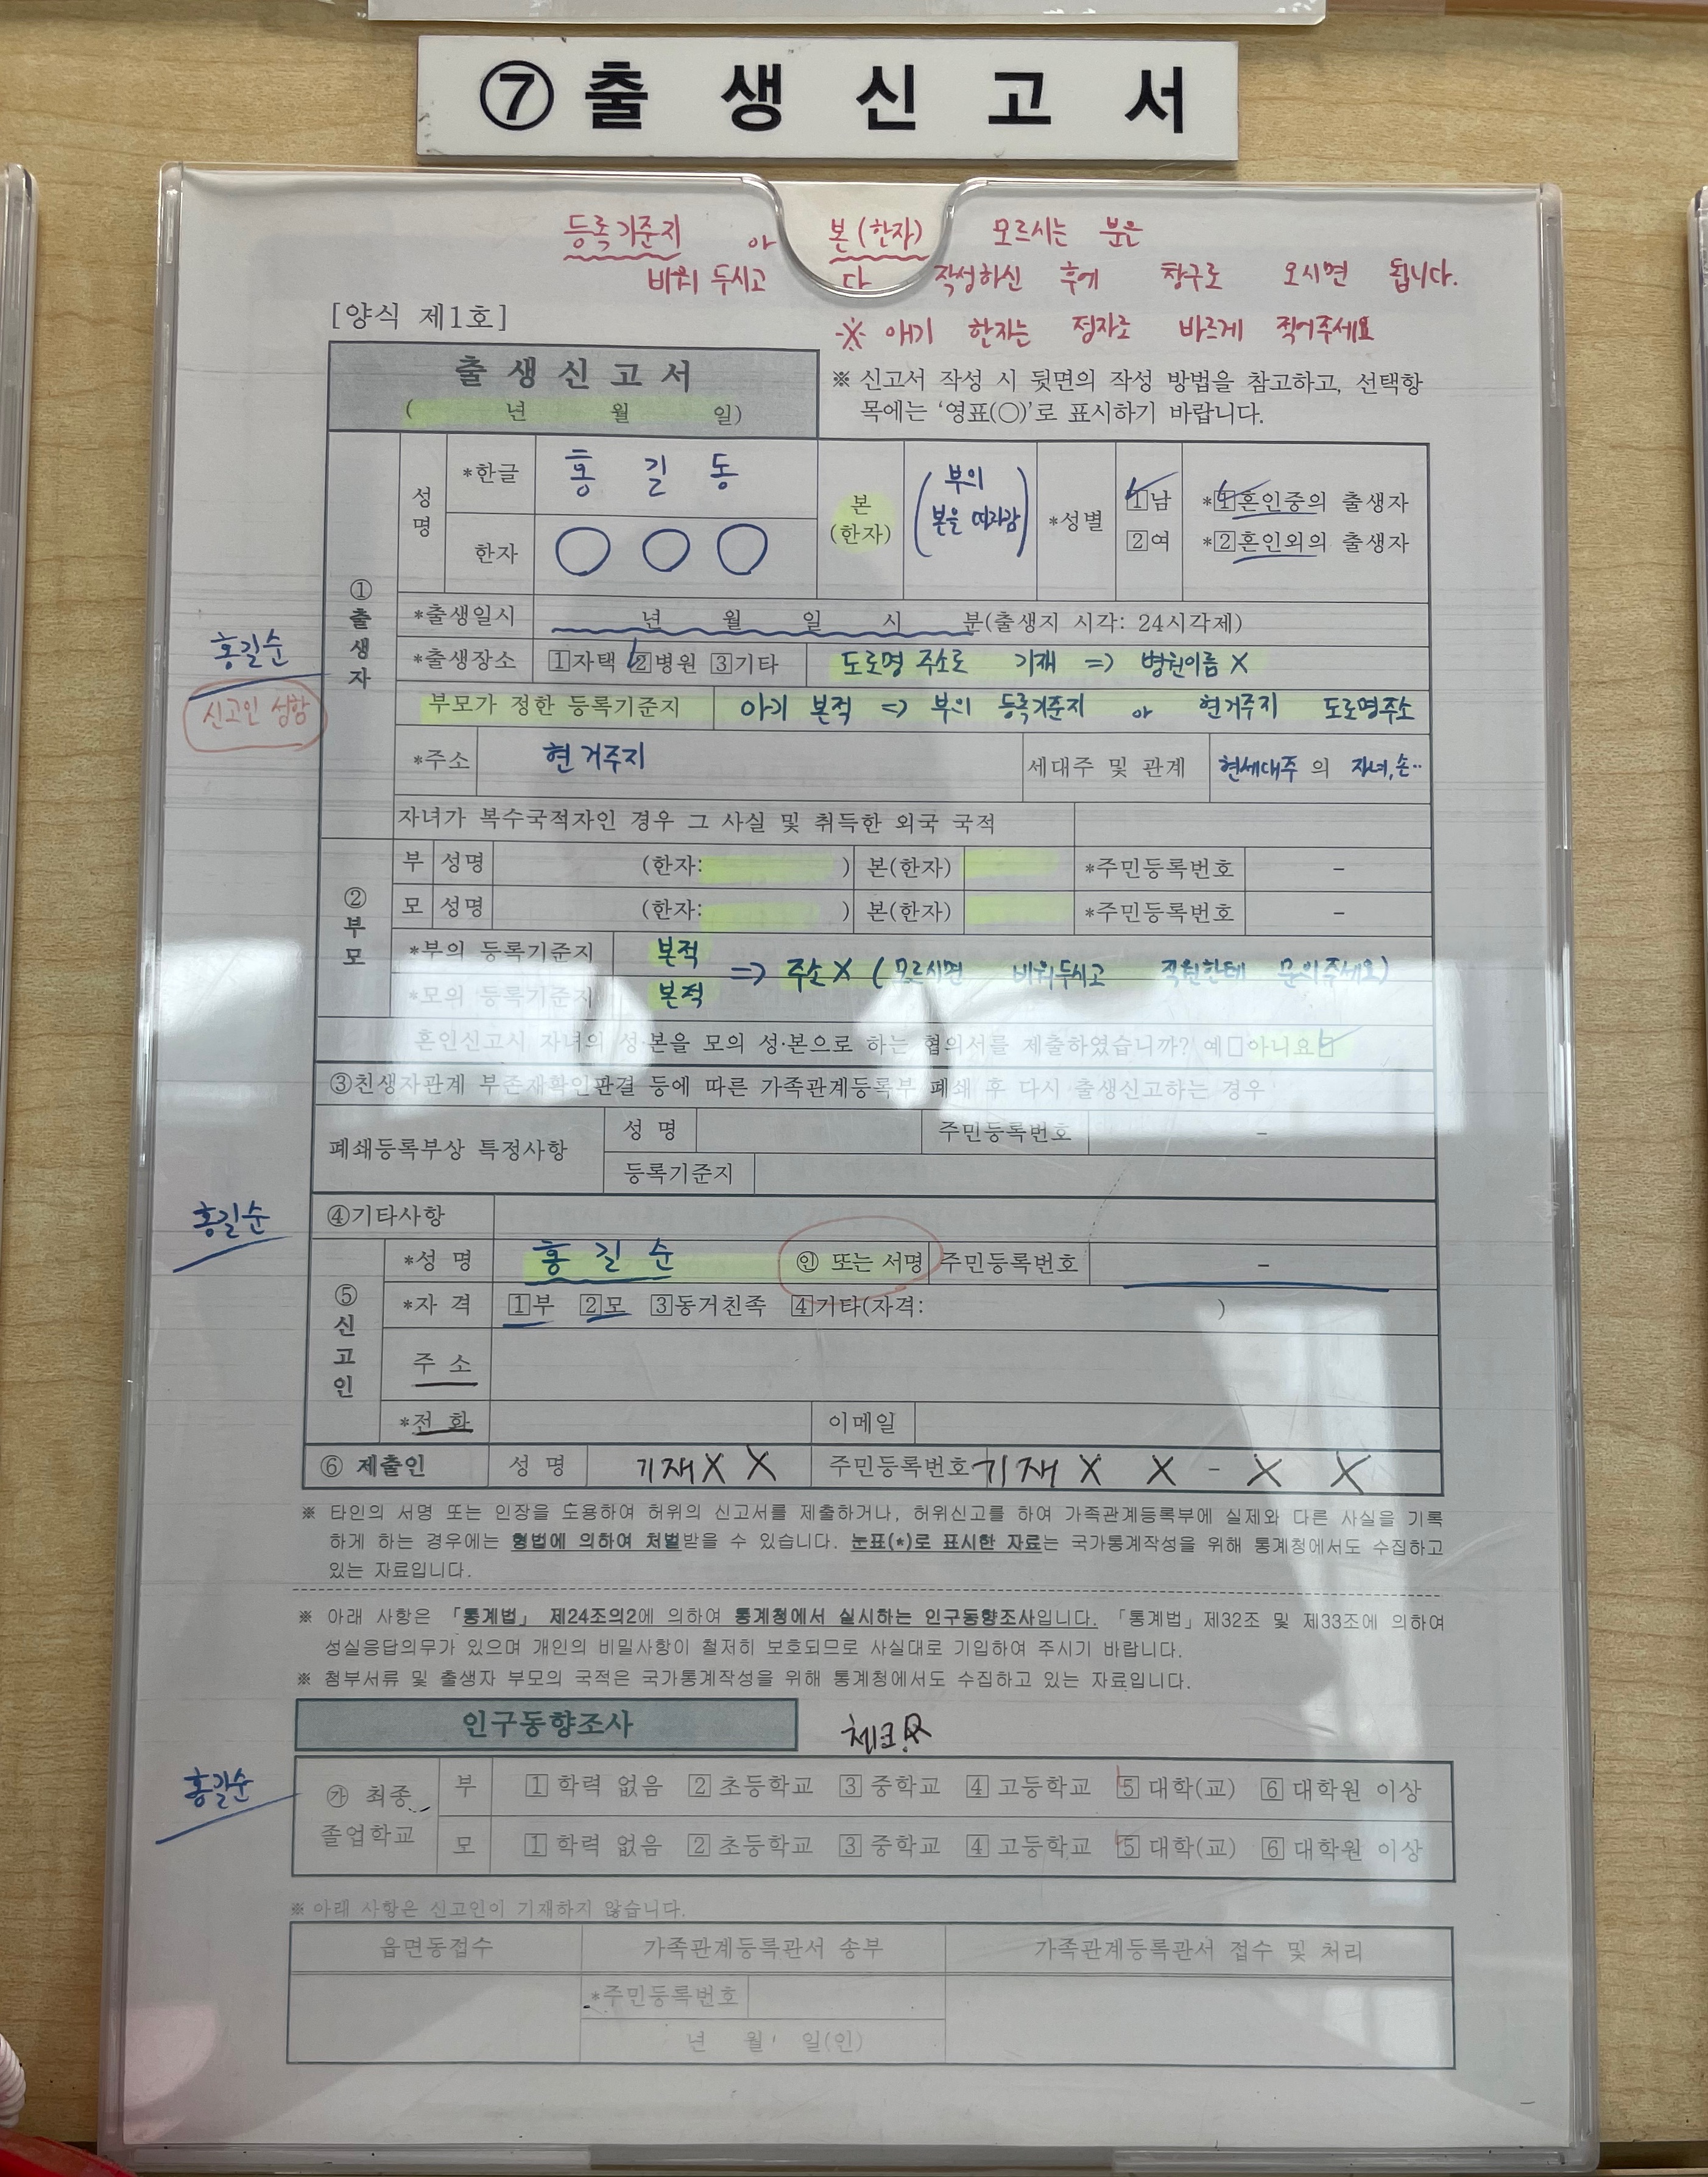 ⑦출 생 신 고 서
등록기준지 or 본(한자) 모르시는 분은
비워 두시고 다 작성하신 후에 창구로 오시면 됩니다.
※ 애기 한자는 정자로 바르게 적어주세요
[양식 제1호]
출 생 신 고 서
( 년 월 일)
※ 신고서 작성 시 뒷면의 작성 방법을 참고하고, 선택항
목에는 ‘영표(○)’로 표시하기 바랍니다.
① 출생자
성명
*한글 홍 길 동
한자 ○ ○ ○
본(한자)
(부의 본을 따라감)
*성별 1남 2여
*1혼인중의 출생자
*2혼인외의 출생자
*출생일시 년 월 일 시 분(출생지 시각: 24시각제)
홍길순
*출생장소 1자택 2병원 3기타 도로명 주소로 기재 => 병원이름 X
신고인 성함
부모가 정한 등록기준지 아기 본적 => 부의 등록기준지 or 현거주지 도로명주소
*주소 현 거주지 세대주 및 관계 현세대주 의 자녀,손..
자녀가 복수국적자인 경우 그 사실 및 취득한 외국 국적
② 부모
부 성명 (한자: ) 본(한자) *주민등록번호 -
모 성명 (한자: ) 본(한자) *주민등록번호 -
*부의 등록기준지 본적
*모의 등록기준지 본적
=> 주소 X (모르시면 비워두시고 직원한테 문의주세요)
혼인신고시 자녀의 성·본을 모의 성·본으로 하는 협의서를 제출하였습니까? 예□아니요□
③친생자관계 부존재확인판결 등에 따른 가족관계등록부 폐쇄 후 다시 출생신고하는 경우
폐쇄등록부상 특정사항 성 명 주민등록번호 -
등록기준지
홍길순
④기타사항
⑤ 신고인
*성 명 홍 길 순 ㊞ 또는 서명 주민등록번호 -
*자 격 1부 2모 3동거친족 4기타(자격: )
주 소
*전 화 이메일
⑥ 제출인 성 명 기재X X 주민등록번호 기재 X X - X X
※ 타인의 서명 또는 인장을 도용하여 허위의 신고서를 제출하거나, 허위신고를 하여 가족관계등록부에 실제와 다른 사실을 기록
하게 하는 경우에는 형법에 의하여 처벌받을 수 있습니다. 눈표(*)로 표시한 자료는 국가통계작성을 위해 통계청에서도 수집하고
있는 자료입니다.
※ 아래 사항은 「통계법」 제24조의2에 의하여 통계청에서 실시하는 인구동향조사입니다. 「통계법」제32조 및 제33조에 의하여
성실응답의무가 있으며 개인의 비밀사항이 철저히 보호되므로 사실대로 기입하여 주시기 바랍니다.
※ 첨부서류 및 출생자 부모의 국적은 국가통계작성을 위해 통계청에서도 수집하고 있는 자료입니다.
인구동향조사
홍길순
㉮ 최종 졸업학교
부 1 학력 없음 2 초등학교 3 중학교 4 고등학교 5 대학(교) 6 대학원 이상
모 1 학력 없음 2 초등학교 3 중학교 4 고등학교 5 대학(교) 6 대학원 이상
※ 아래 사항은 신고인이 기재하지 않습니다.
읍면동접수 가족관계등록관서 송부 가족관계등록관서 접수 및 처리
*주민등록번호
년 월 일(인)